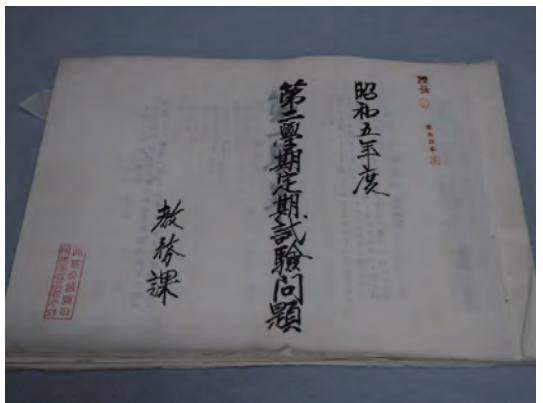 昭和五年度
第二學期定期試驗问題
教務課